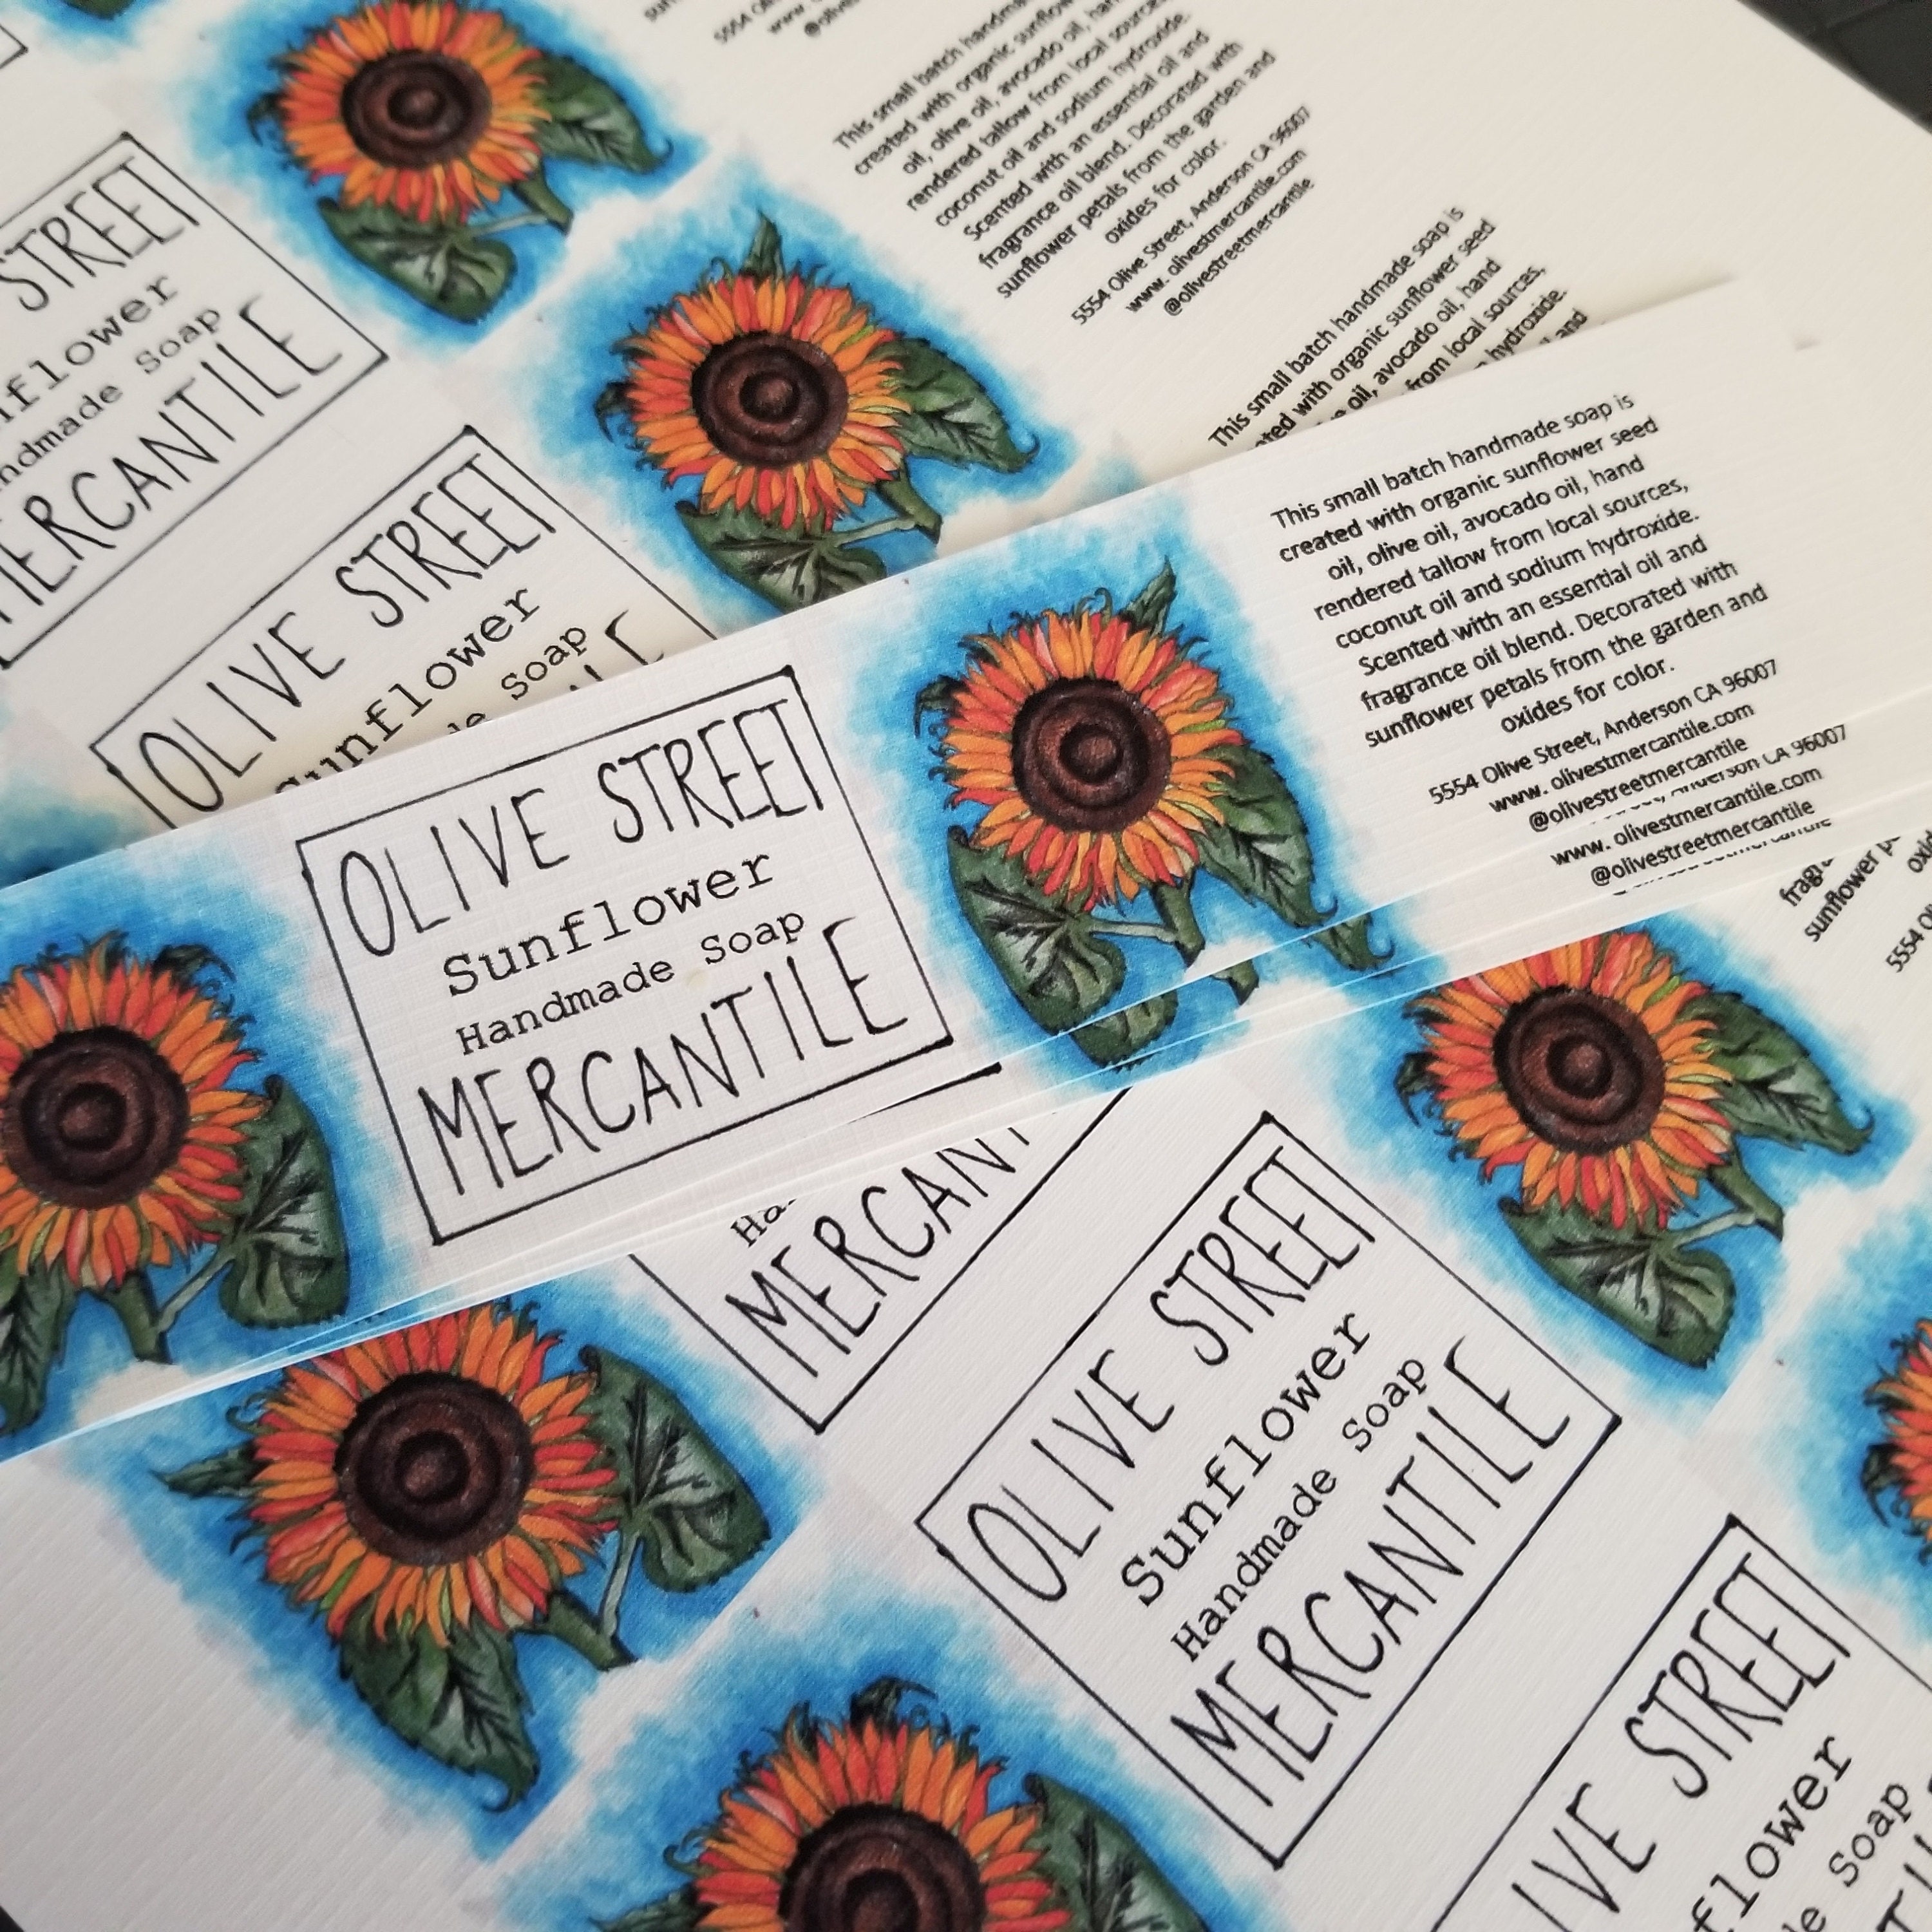 STREET
Handmade Soap
MERCANTILE
OLIVE STREET
Sunflower
Soap
This small batch handmade
created with organic sunflower
oil, olive oil, avocado oil,
rendered tallow from local sources
coconut oil and sodium hydroxide.
Scented with an essential oil and
fragrance oil blend. Decorated with
sunflower petals from the garden and
oxides for color.
5554 Olive Street, Anderson CA 96007
www. olivestmercantile.com
@olivestreetmercantile
This small batch handmade soap is
with organic sunflower seed
oil, avocado oil, hand
from local sources,
hydroxide.
and
OLIVE STREET
Sunflower
Handmade Soap
MERCANTILE
This small batch handmade soap is
created with organic sunflower seed
oil, olive oil, avocado oil, hand
rendered tallow from local sources,
coconut oil and sodium hydroxide.
Scented with an essential oil and
fragrance oil blend. Decorated with
sunflower petals from the garden and
oxides for color.
5554 Olive Street, Anderson CA 96007
www. olivestmercantile.com
@olivestreetmercantile
Anderson CA 96007
www. olivestmercantile.com
@olivestreetmercantile
sunflower
5554
MERCANT
OLIVE STREET
Sunflower
Handmade Soap
MERCANTILE
STREET
Soap